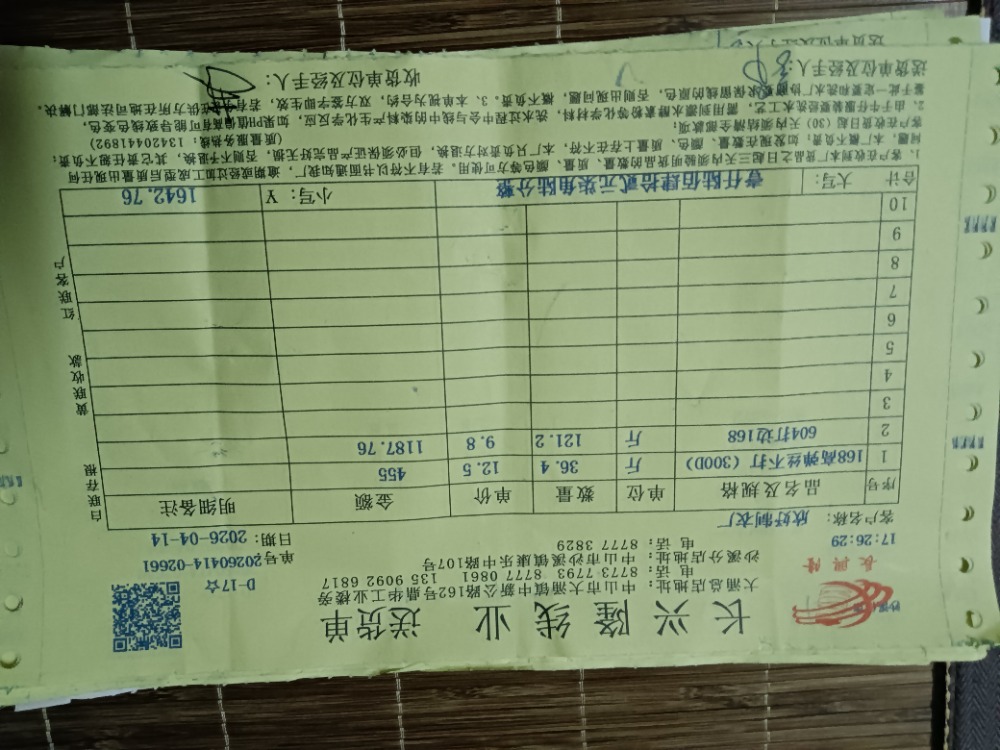 长兴隆线业 送货单
大涌总店地址：中山市大涌镇中新公路162号鼎华工业楼旁
电话：8773 7793 8777 0861 135 9092 6817
沙溪分店地址：中山市沙溪镇康乐中路107号
电话：8777 3829
长兴隆
D-17☆
单号：20260414-02661
17:26:29
客户名称：欣好制衣厂
日期：2026-04-14
序号 品名及规格 单位 数量 单价 金额 明细备注
1 168高弹丝不打（300D） 斤 36.4 12.5 455
2 604打边168 斤 121.2 9.8 1187.76
3
4
5
6
7
8
9
10
合计 大写：壹仟陆佰肆拾贰元柒角陆分整 小写：¥ 1642.76
白联存根
黄联收款
红联客户
1、客户在收到本厂货品之日起三天内须验明货品的数量、质量、颜色等方可使用，若有不符以书面通知我厂，逾期或经过加工成型后质量出现任何
问题，本厂概不负责；如发现在数量、颜色、质量上存在不符，本厂只负责对方退换，但必须保证产品完好无损，否则不予退换，其它责任概不负责；
客户在收货日起（30）天内须结清全部款项；
（质量服务热线：13420441892）
2、由于牛仔服装要经洗水工艺，需用到漂水酵素粉等化学材料，洗水过程中会与线中的染料产生化学反应，如果PH值偏高有可能导致线色变色，
鉴于此一定要和洗水厂协商要求保留线的原色，否则出现问题，概不负责。3、本单视为合约，双方签字即生效，若有
送货单位及经手人：
收货单位及经手人：